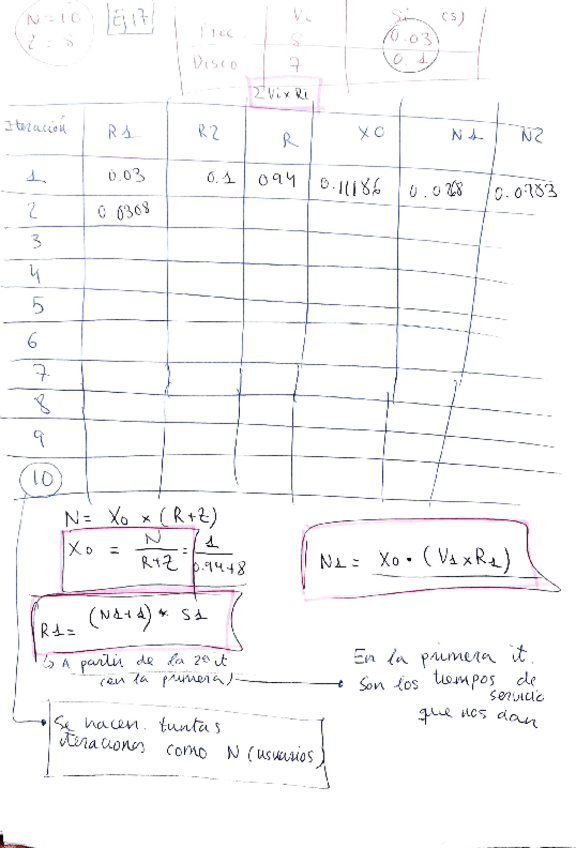 N=10
Ej 17
Vi
Si (s)
Z = 8
Proc
8
0.03
Disco
7
0.1
ΣVi×Ri
Iteración R1 R2 R X0 N1 N2
1 0.03 0.1 0.94 0.11186 0.0268 0.0783
2 0.0308
3
4
5
6
7
8
9
10
N = X0 × (R+Z)
X0 = N / R+Z = 1 / 0.94+8
N1 = X0 · (V1×R1)
R1 = (N1+1) * S1
↳ A partir de la 2ª it
(en la primera)
En la primera it.
son los tiempos de
servicio
que nos dan
Se hacen tantas
iteraciones como N (usuarios)